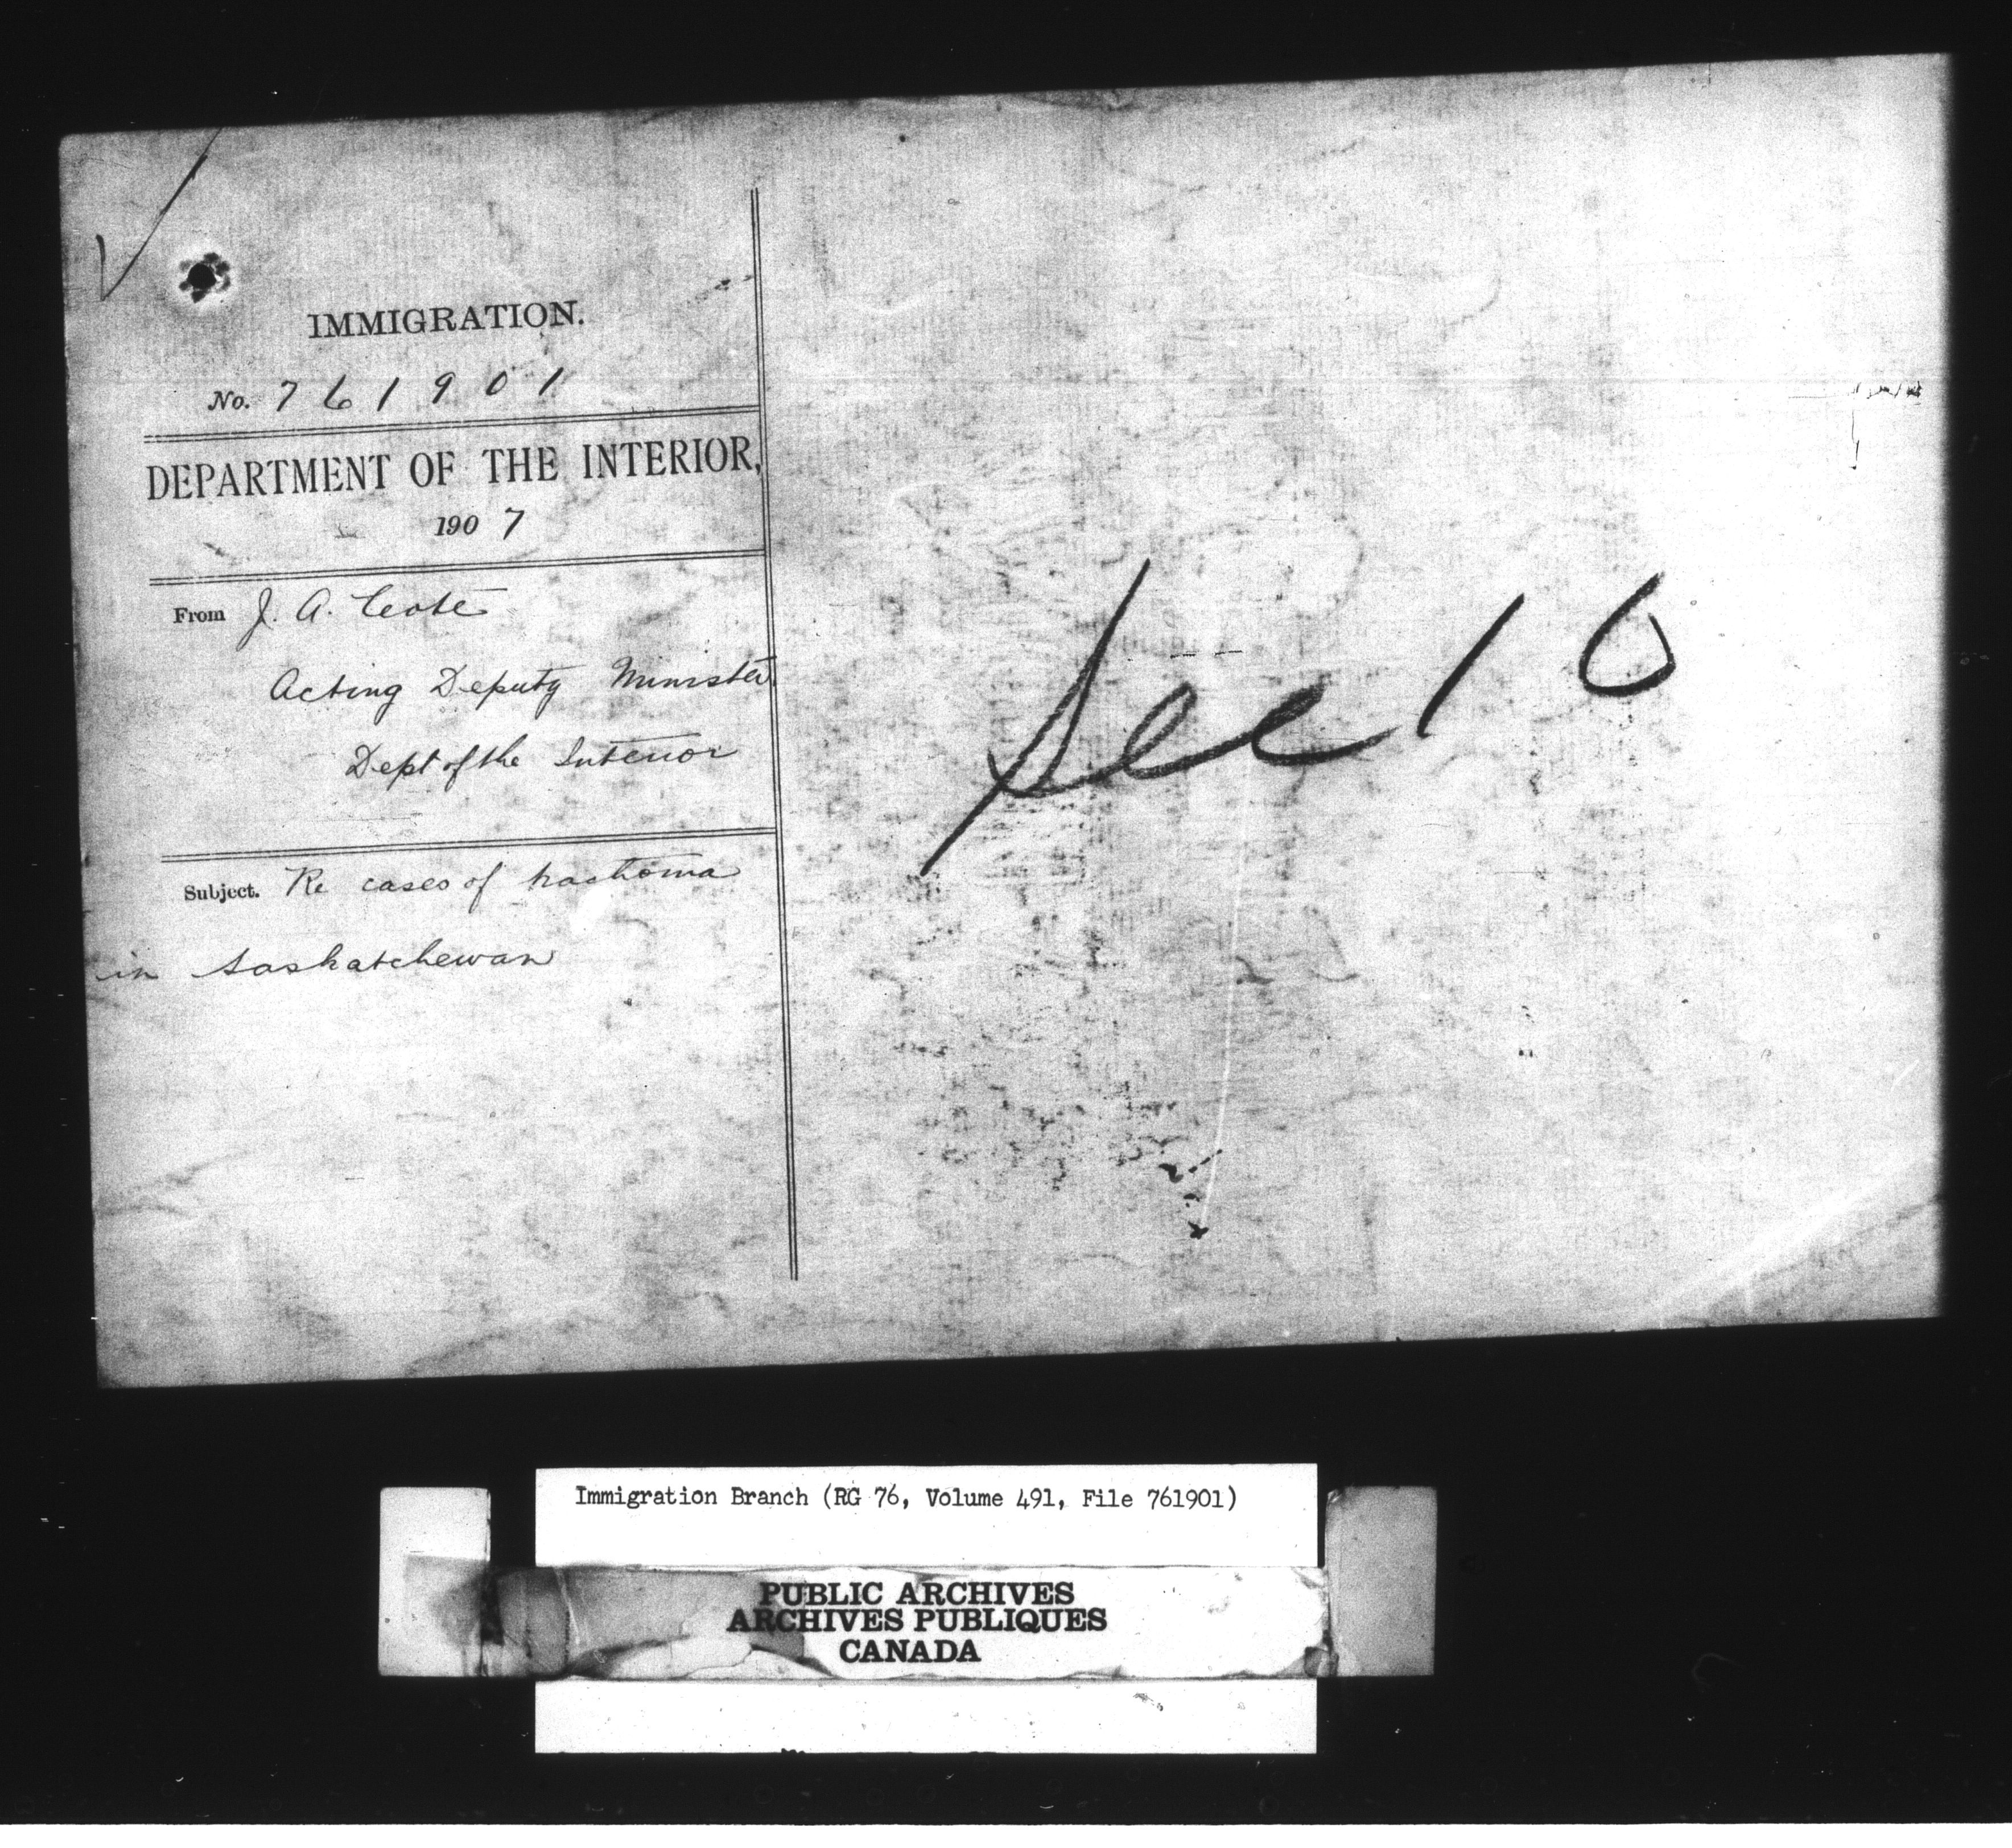 IMMIGRATION.
No. 761901
DEPARTMENT OF THE INTERIOR,
1907
From J. A. Cote
Acting Deputy Minister
Dept of the Interior
Subject. Re cases of trachoma
in Saskatchewan
See 10
Immigration Branch (RG 76, Volume 491, File 761901)
PUBLIC ARCHIVES
ARCHIVES PUBLIQUES
CANADA